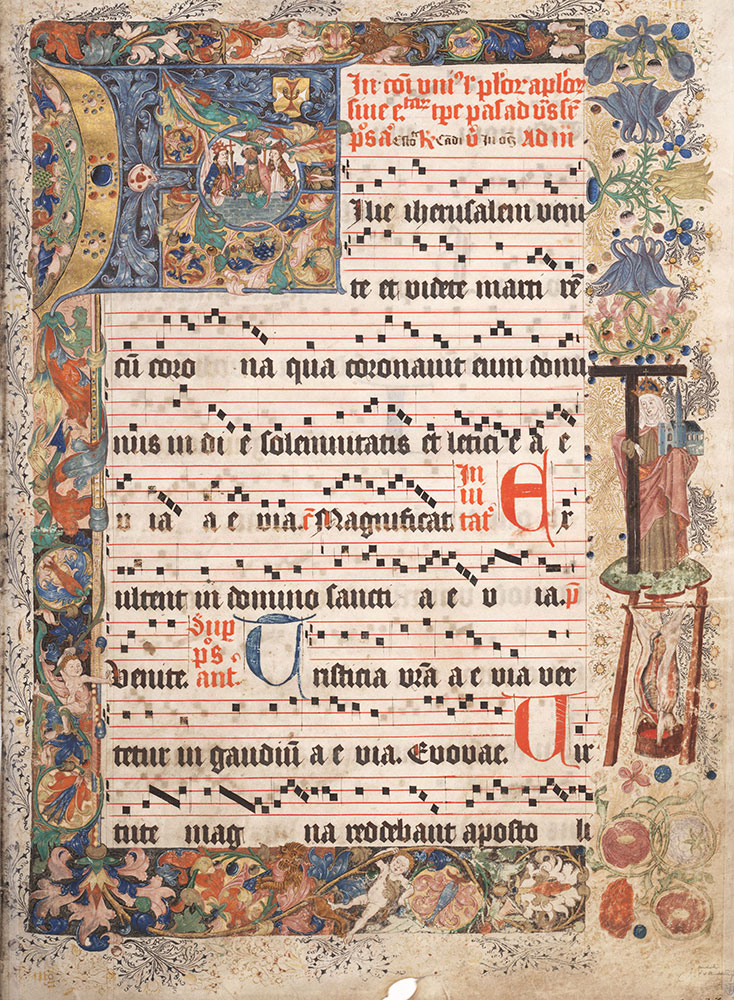 In coī vniꝰ l pl'ior apl'or
sine r tpe pas ad v̄s
p̄s a Esto R Cādi v̄ In oī Ad m
Ilie iherusalem veni
te et videte marti rē
cū coro na qua coronavit eum domi
nus in di e solemnitatis et leticie a e
v ia a e via. Magnificat. In ui tat E x
ultent in domino sancti a e v ia. p̄
Venite. Sup p̄s ant. T ristitia vr̄a a e via ver
tetur in gaudiū a e via. Evovae. V ir
tute mag na reddebant aposto li